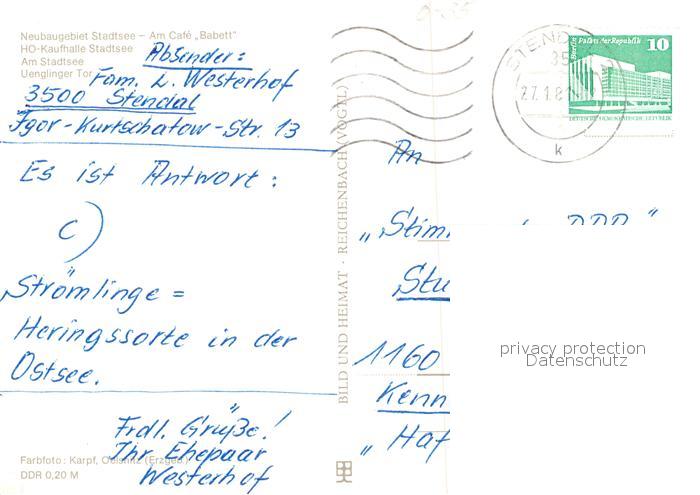 Neubaugebiet Stadtsee – Am Café „Babett"
HO-Kaufhalle Stadtsee
Am Stadtsee
Uenglinger Tor
Absender:
Fam. L. Westerhof
3500 Stendal
Igor-Kurtschatow-Str. 13
Es ist Antwort:
c)
„Strömlinge =
Heringssorte in der
Ostsee.
Frdl. Grüße!
Ihr Ehepaar
Westerhof
Farbfoto: Karpf, (Erzgeb.)
DDR 0,20 M
BILD UND HEIMAT · REICHENBACH (VOGEL)
STEND
35
27.1.8
k
Berlin Palast der Republik 10
DEUTSCHE DEMOKRATISCHE REPUBLIK
An
„Stim DDR"
Stu
1160
Kenn
„Haf
privacy protection
Datenschutz